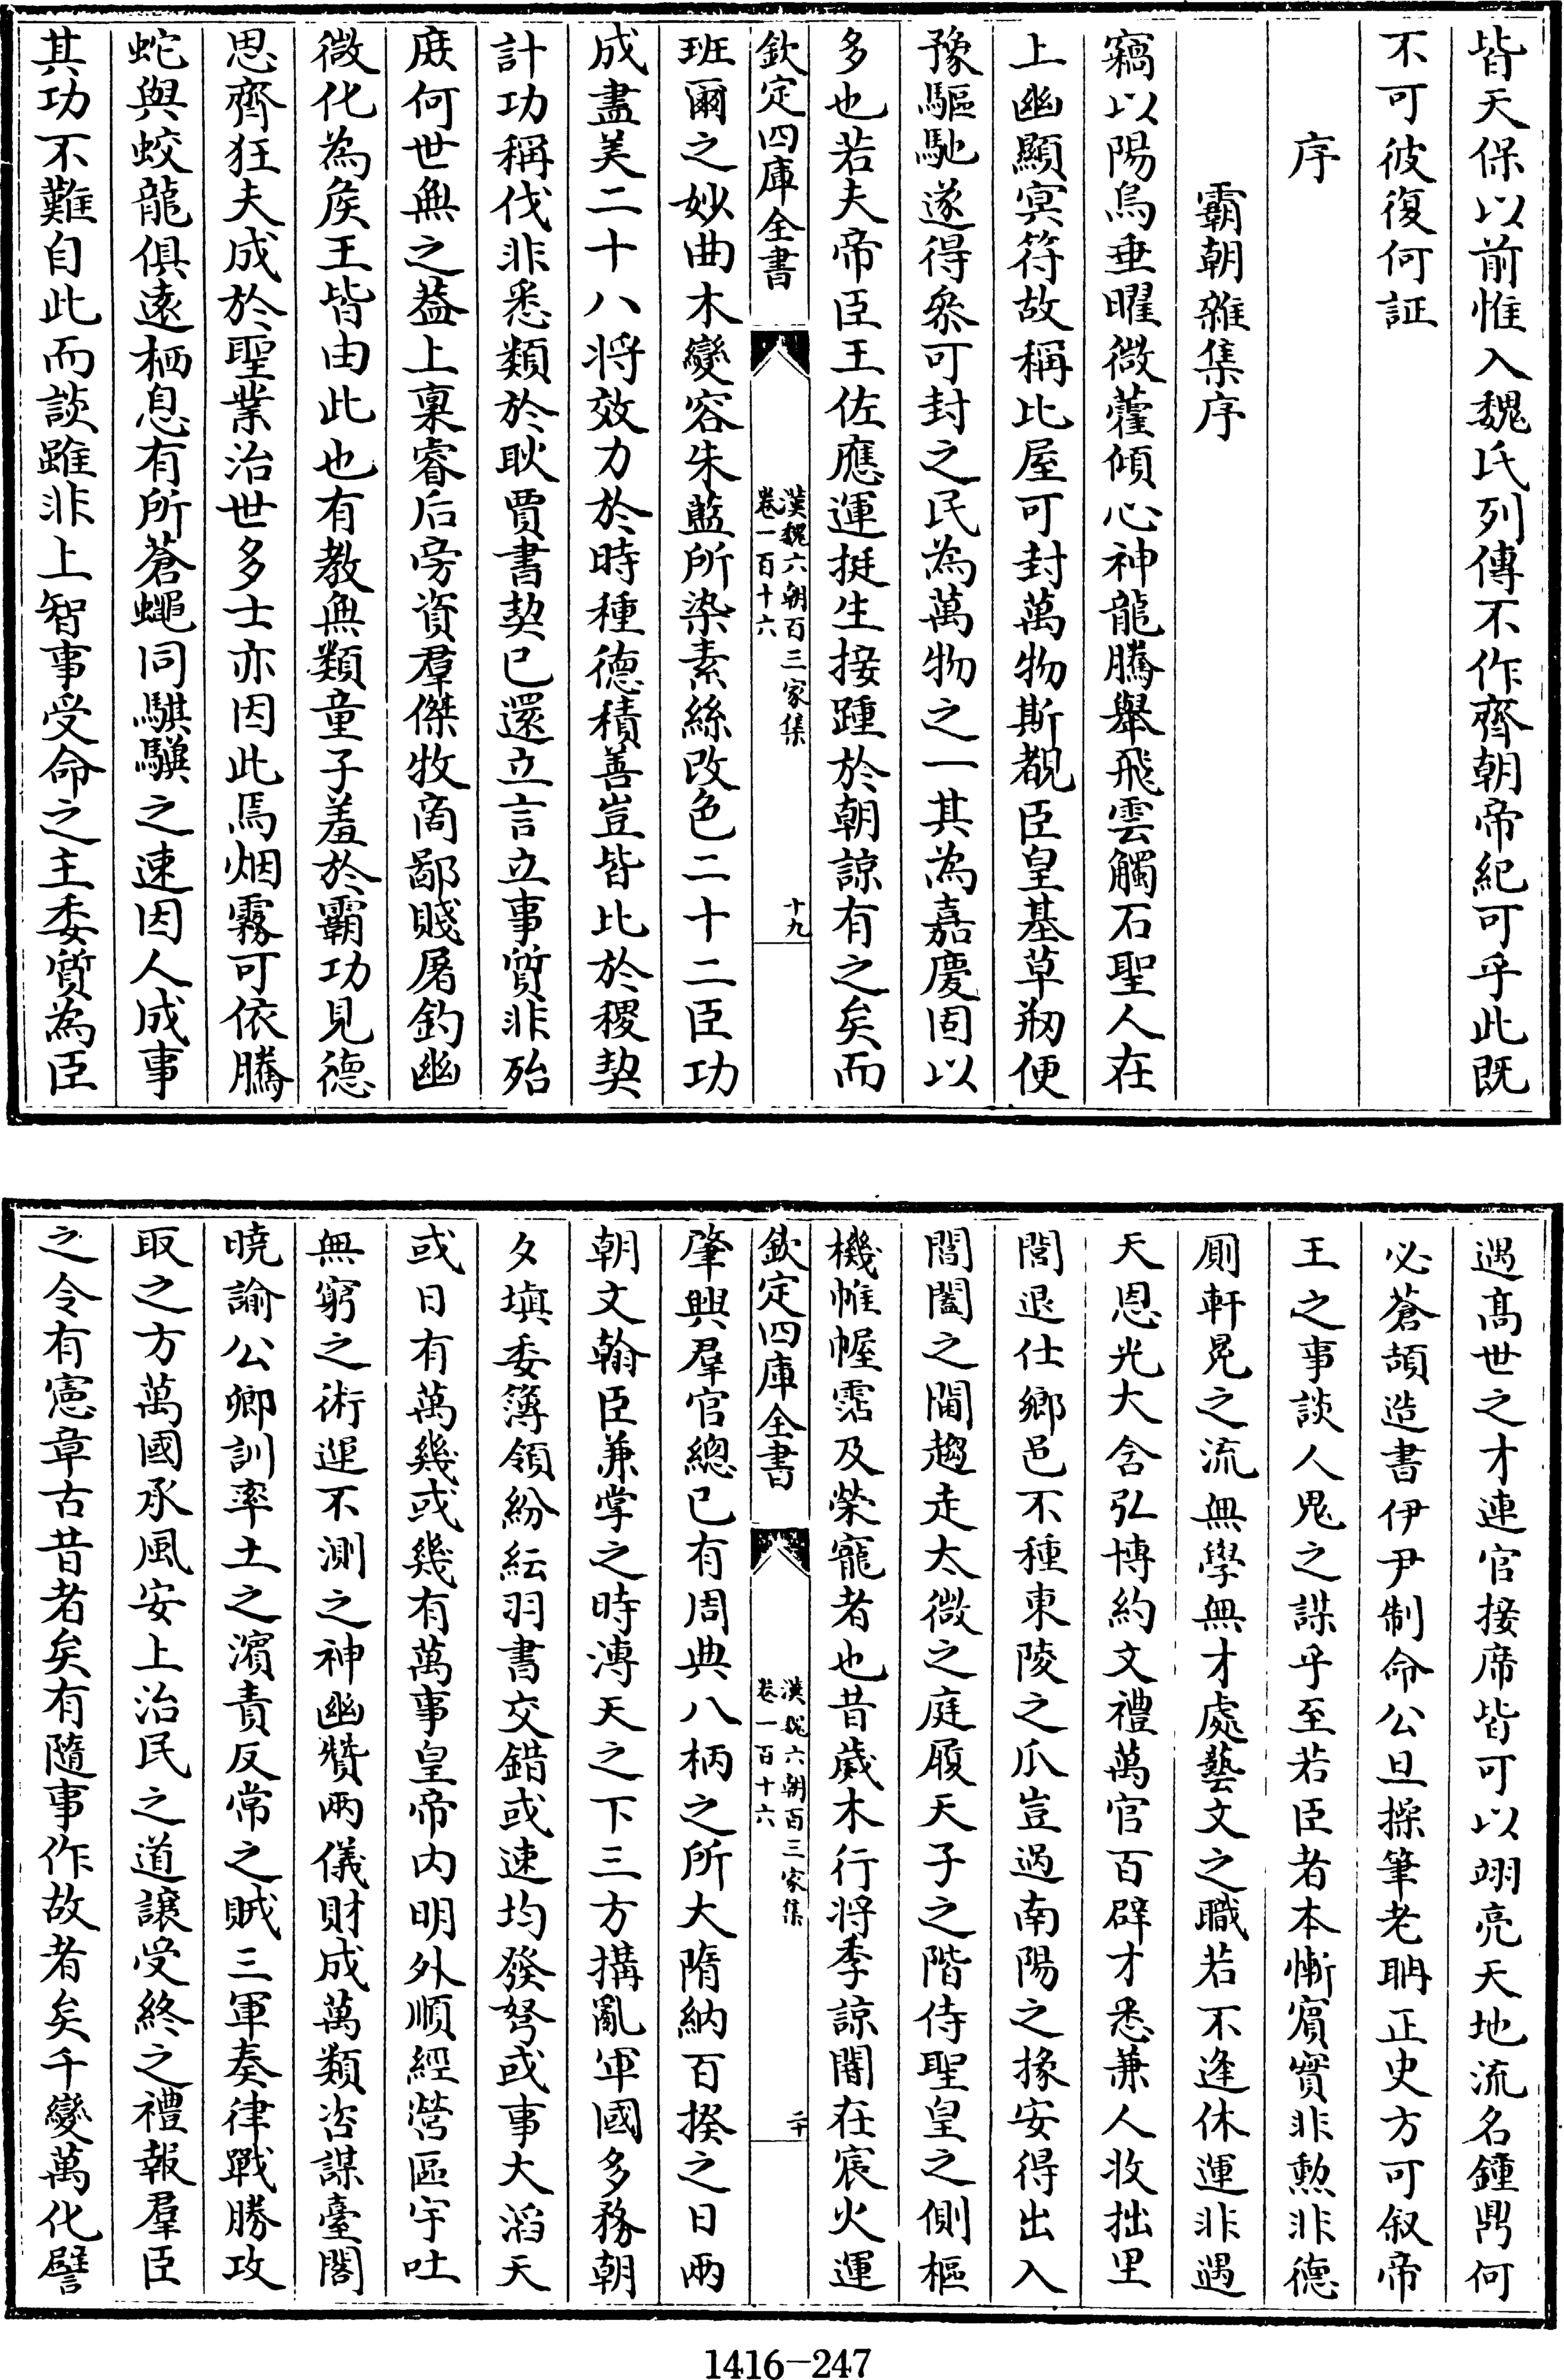 皆天保以前惟入魏氏列傳不作齊朝帝紀可乎此既
不可彼復何証
序
霸朝雜集序
竊以陽烏垂曜微藿傾心神龍騰舉飛雲觸石聖人在
上幽顯冥符故稱比屋可封萬物斯覩臣皇基草刱便
豫驅馳遂得叅可封之民為萬物之一其為嘉慶固以
多也若夫帝臣王佐應運挺生接踵於朝諒有之矣而
欽定四庫全書
漢魏六朝百三家集
卷一百十六
十九
班爾之妙曲木變容朱藍所染素絲改色二十二臣功
成盡美二十八將效力於時種德積善豈皆比於稷契
計功稱伐非悉類於耿賈書契已還立言立事質非殆
庶何世無之葢上稟睿后旁資羣傑牧商鄙賤屠釣幽
微化為矦王皆由此也有教無類童子羞於霸功見德
思齊狂夫成於聖業治世多士亦因此焉烟霧可依騰
蛇與蛟龍俱遠栖息有所蒼蠅同騏驥之速因人成事
其功不難自此而談雖非上智事受命之主委質為臣
遇高世之才連官接席皆可以翊亮天地流名鐘鼎何
必蒼頡造書伊尹制命公旦操筆老聃正史方可叙帝
王之事談人鬼之謀乎至若臣者本慚賓實非勲非德
厠軒冕之流無學無才處藝文之職若不逢休運非遇
天恩光大含弘博約文禮萬官百辟才悉兼人收拙里
閭退仕鄉邑不種東陵之瓜豈過南陽之掾安得出入
閶闔之閫趨走太微之庭履天子之階侍聖皇之側樞
機帷幄霑及榮寵者也昔歲木行將季諒闇在宸火運
欽定四庫全書
漢魏六朝百三家集
卷一百十六
二十
肇興羣官總已有周典八柄之所大隋納百揆之日兩
朝文翰臣兼掌之時溥天之下三方搆亂軍國多務朝
夕塡委簿領紛紜羽書交錯或速均發弩或事大滔天
或日有萬幾或幾有萬事皇帝内明外順經營區宇吐
無窮之術運不測之神幽贊兩儀財成萬類咨謀臺閣
曉諭公卿訓率土之濱責反常之賊三軍奏律戰勝攻
取之方萬國承風安上治民之道讓受終之禮報羣臣
之令有憲章古昔者矣有隨事作故者矣千變萬化譬
1416-247